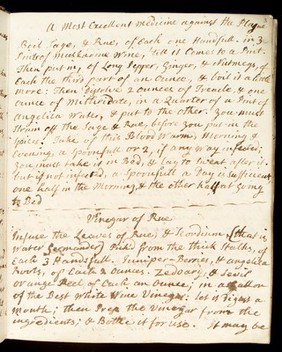 A Most Excellent Medicine against the Plague
Boil Sage, & Rue, of Each one Handfull, in 3
Pints of Muskadine Wine, 'till it Comes to a Pint:
Then put in, of Long Pepper, Ginger, & Nutmegs, of
Each the third part of an Ounce, & boil it a little
more: Then Dissolve 2 ounces of Treacle, & one
ounce of Mithridate, in a Quarter of a Pint of
Angelica Water, & put to the other. You must
Strain off the Sage & Rue before you put in the
Spices. Take of this Blood Warm, Morning &
Evening, a spoonfull or 2, if any way infected;
You must take it in Bed, & lay to sweat after it.
But if not infected, a spoonfull a Day is Sufficient
one half in the Morning, & the other half at Going
to Bed
Vinegar of Rue
Infuse the Leaves of Rue, & Scordium, (that is
Water Germander) Pick'd from the thick Stalks, of
Each 3 Handfull. Juniper-Berries, & Angelica
Roots, of Each 2 Ounces. Zedoary, & Sevil
orange Peel of Each an ounce; in a Gallon
of the Best White Wine Vinegar: let it Digest a
Month; then Press the Vinegar from the
ingredients; & Bottle it for use. It may be